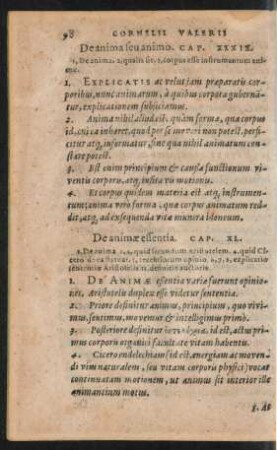 98 CORNELII VALERII
De anima seu animo. CAP. XXXIX.
1. De anima. 2. qualis sit. 3. corpus esse instrumentum ani-
mæ.
1. EXPLICATIS ac velut jam præparatis cor-
poribus, nunc animarum, à quibus corpora guberná-
tur, explicationem subiiciamus.
2. Anima nihil aliud est, quàm forma, quæ corpus
id, cui ea inhæret, quod per se inerti non potest, perfi-
citur atq; informatur, sine qua nihil animatum con-
stare potest.
3. Est enim principium & causa functionum vi-
ventis corporis, atq; insita vis motionis.
4. Et corpus quidem materia est atq; instrumen-
tum; anima verò forma, quæ corpus animatum red-
dit, atq; ad exsequenda vitæ munera idoneum.
De animæ essentia. CAP. XL.
1. De anima. 2. quid secundum Aristotelem. 4. quid Ci-
sententiæ Aristotelis 11. definitio auctoris.
1. DE ANIMÆ essentia variæ fuerunt opinio-
nes. Aristotelis duplex est videtur sententia.
2. Priore definitur animus, principium, quo vivi-
mus, sentimus, movemur & intelligimus primò.
3. Posteriore definitur ἐντελέχεια, id est, actus pri-
mus corporis organici facultate vitam habentis.
4. Cicero endelechiam (id est, energiam ac moven-
di vim naturalem, seu vitam corporis physici) vocat
continuatam motionem, ut animus sit interior ille
animantium motus.
5. At